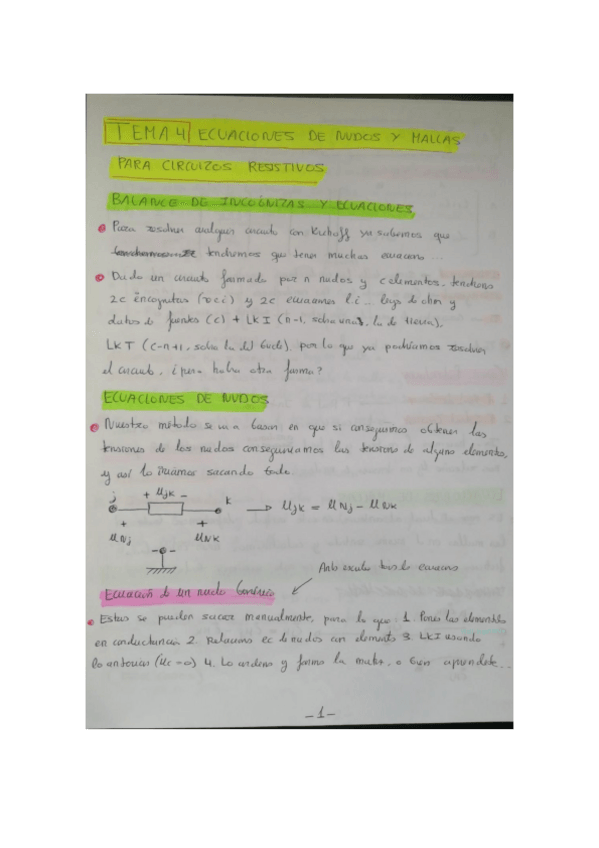 TEMA 4 ECUACIONES DE NUDOS Y MALLAS
PARA CIRCUIZOS RESISTIVOS
BALANCE DE INCOGNITAS Y ECUACIONES
Para resolver cualquier circuito con Kirhoff ya sabemos que
tendremos que tener muchas ecuaciones ...
Dado un circuito formado por n nudos y c elementos, tendremos
2c incognitas (v c i) y 2c ecuaciones l.i... leyes de ohm y
datos de fuentes (c) + LKI (n-1, sobra una, la de tierra),
LKT (c-n+1, sobra la del bucle), por lo que ya podríamos resolver
el circuito, ¿pero habra otra forma?
ECUACIONES DE NUDOS
Nuestro método se va a basar en que si conseguimos obtener las
tensiones de los nudos conseguiriamos las tensiones de alguno elementos,
y así lo iriamos sacando todo
j + Ujk - k → Ujk = UNj - UNk
+ +
UNj UNk
Ecuación de un nudo Genérico
Estas se pueden sacar manualmente, para lo que 1. Pones los elementos
en conductancia 2. Relaciono ec de nudos con elemento 3. LKI usando
lo entonces 4. Lo ordeno y formo la matriz, o bien aprendete...
-1-